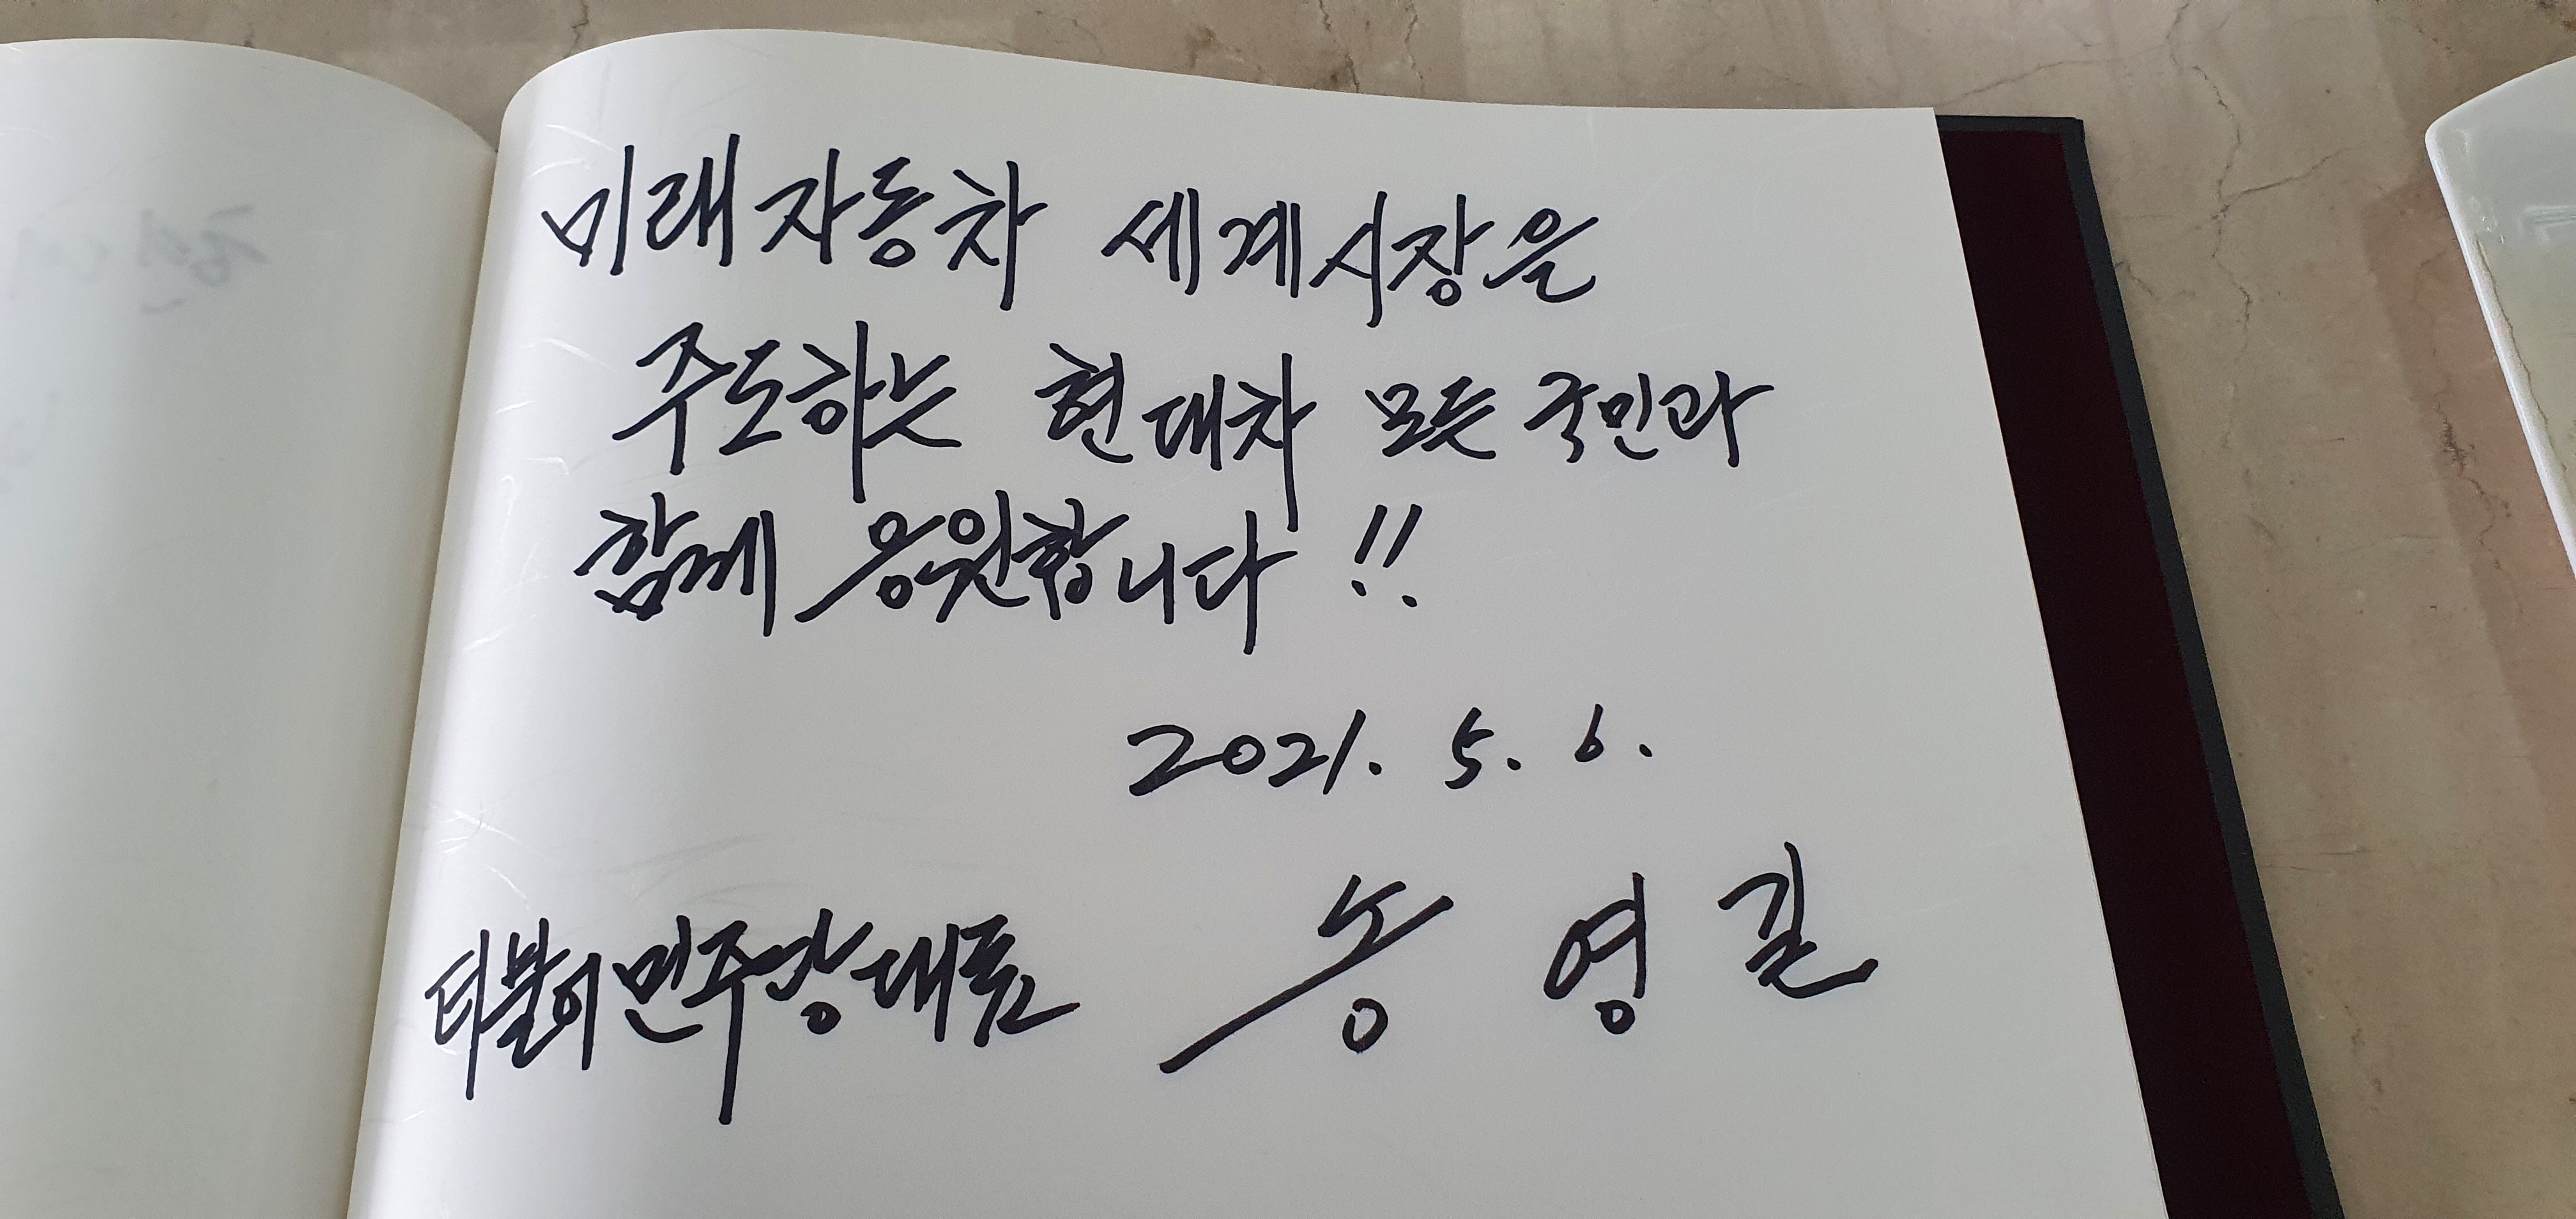 미래자동차 세계시장을
주도하는 현대차 모든 국민과
함께 응원합니다 !!
2021. 5. 6.
더불어민주당대표 송영길